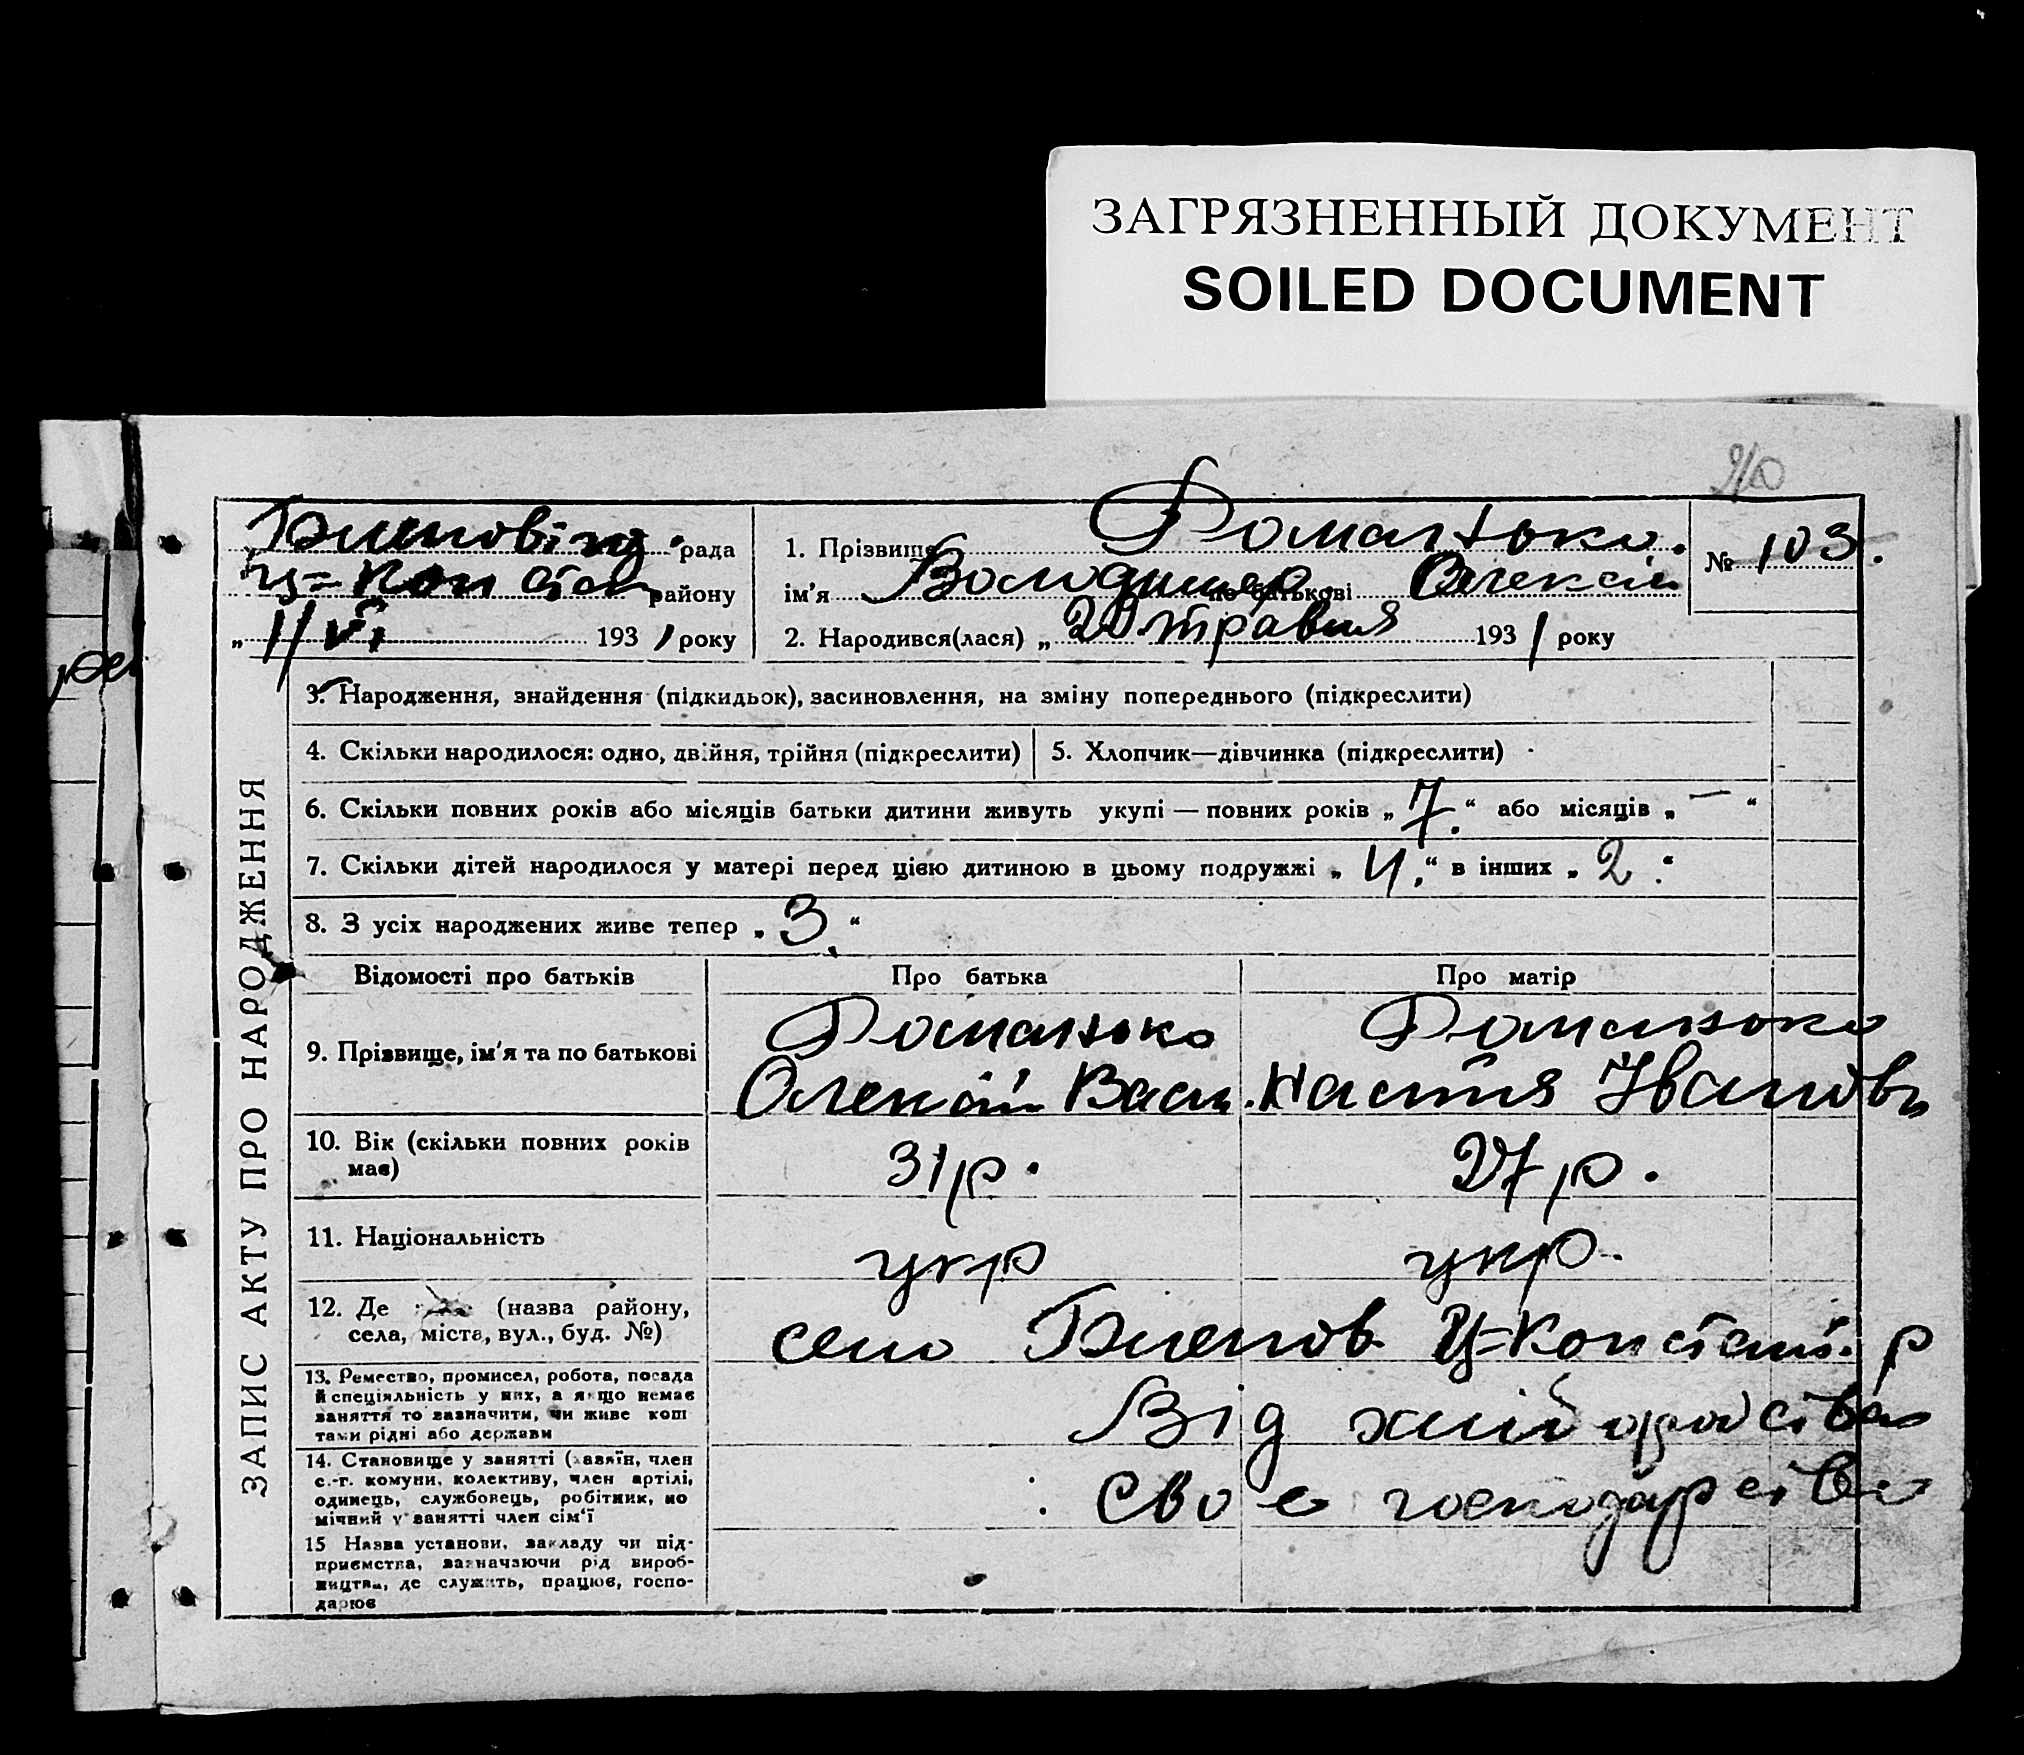 ЗАГРЯЗНЕННЫЙ ДОКУМЕНТ
SOILED DOCUMENT
210
рада
1. Прізвище Романько.
№ 103.
Ц=Констан району
ім'я Володимер по батькові Олексій
„ 1/VI 1931 року
2. Народився(лася) „ 20 травня 1931 року
ЗАПИС АКТУ ПРО НАРОДЖЕННЯ
3. Народження, знайдення (підкидьок), засиновлення, на зміну попереднього (підкреслити)
4. Скільки народилося: одно, двійня, трійня (підкреслити)
5. Хлопчик—дівчинка (підкреслити)
6. Скільки повних років або місяців батьки дитини живуть укупі — повних років „ 7. “ або місяців „ — “
7. Скільки дітей народилося у матері перед цією дитиною в цьому подружжі „ 4. “ в інших „ 2. “
8. З усіх народжених живе тепер „ 3. “
Відомості про батьків
Про батька
Про матір
9. Прізвище, ім'я та по батькові
Романько
Олексій Васи.
Романько
Настя Івановн
10. Вік (скільки повних років
має)
31 р.
27 р.
11. Національність
укр
укр.
12. Де (назва району,
села, міста, вул., буд. №)
село Ц=Констант. р
13. Ремество, промисел, робота, посада
й спеціяльність у них, а якщо немає
заняття то зазначити, чи живе кош
тами рідні або держави
Від хліборобства
14. Становище у занятті (хазяїн, член
с.-г. комуни, колективу, член артілі,
одинець, службовець, робітник, по
мічний у занятті член сім'ї
Своє господарство
15 Назва установи, закладу чи під-
приємства, зазначаючи рід вироб-
ництва, де служить, працює, госпо-
дарює